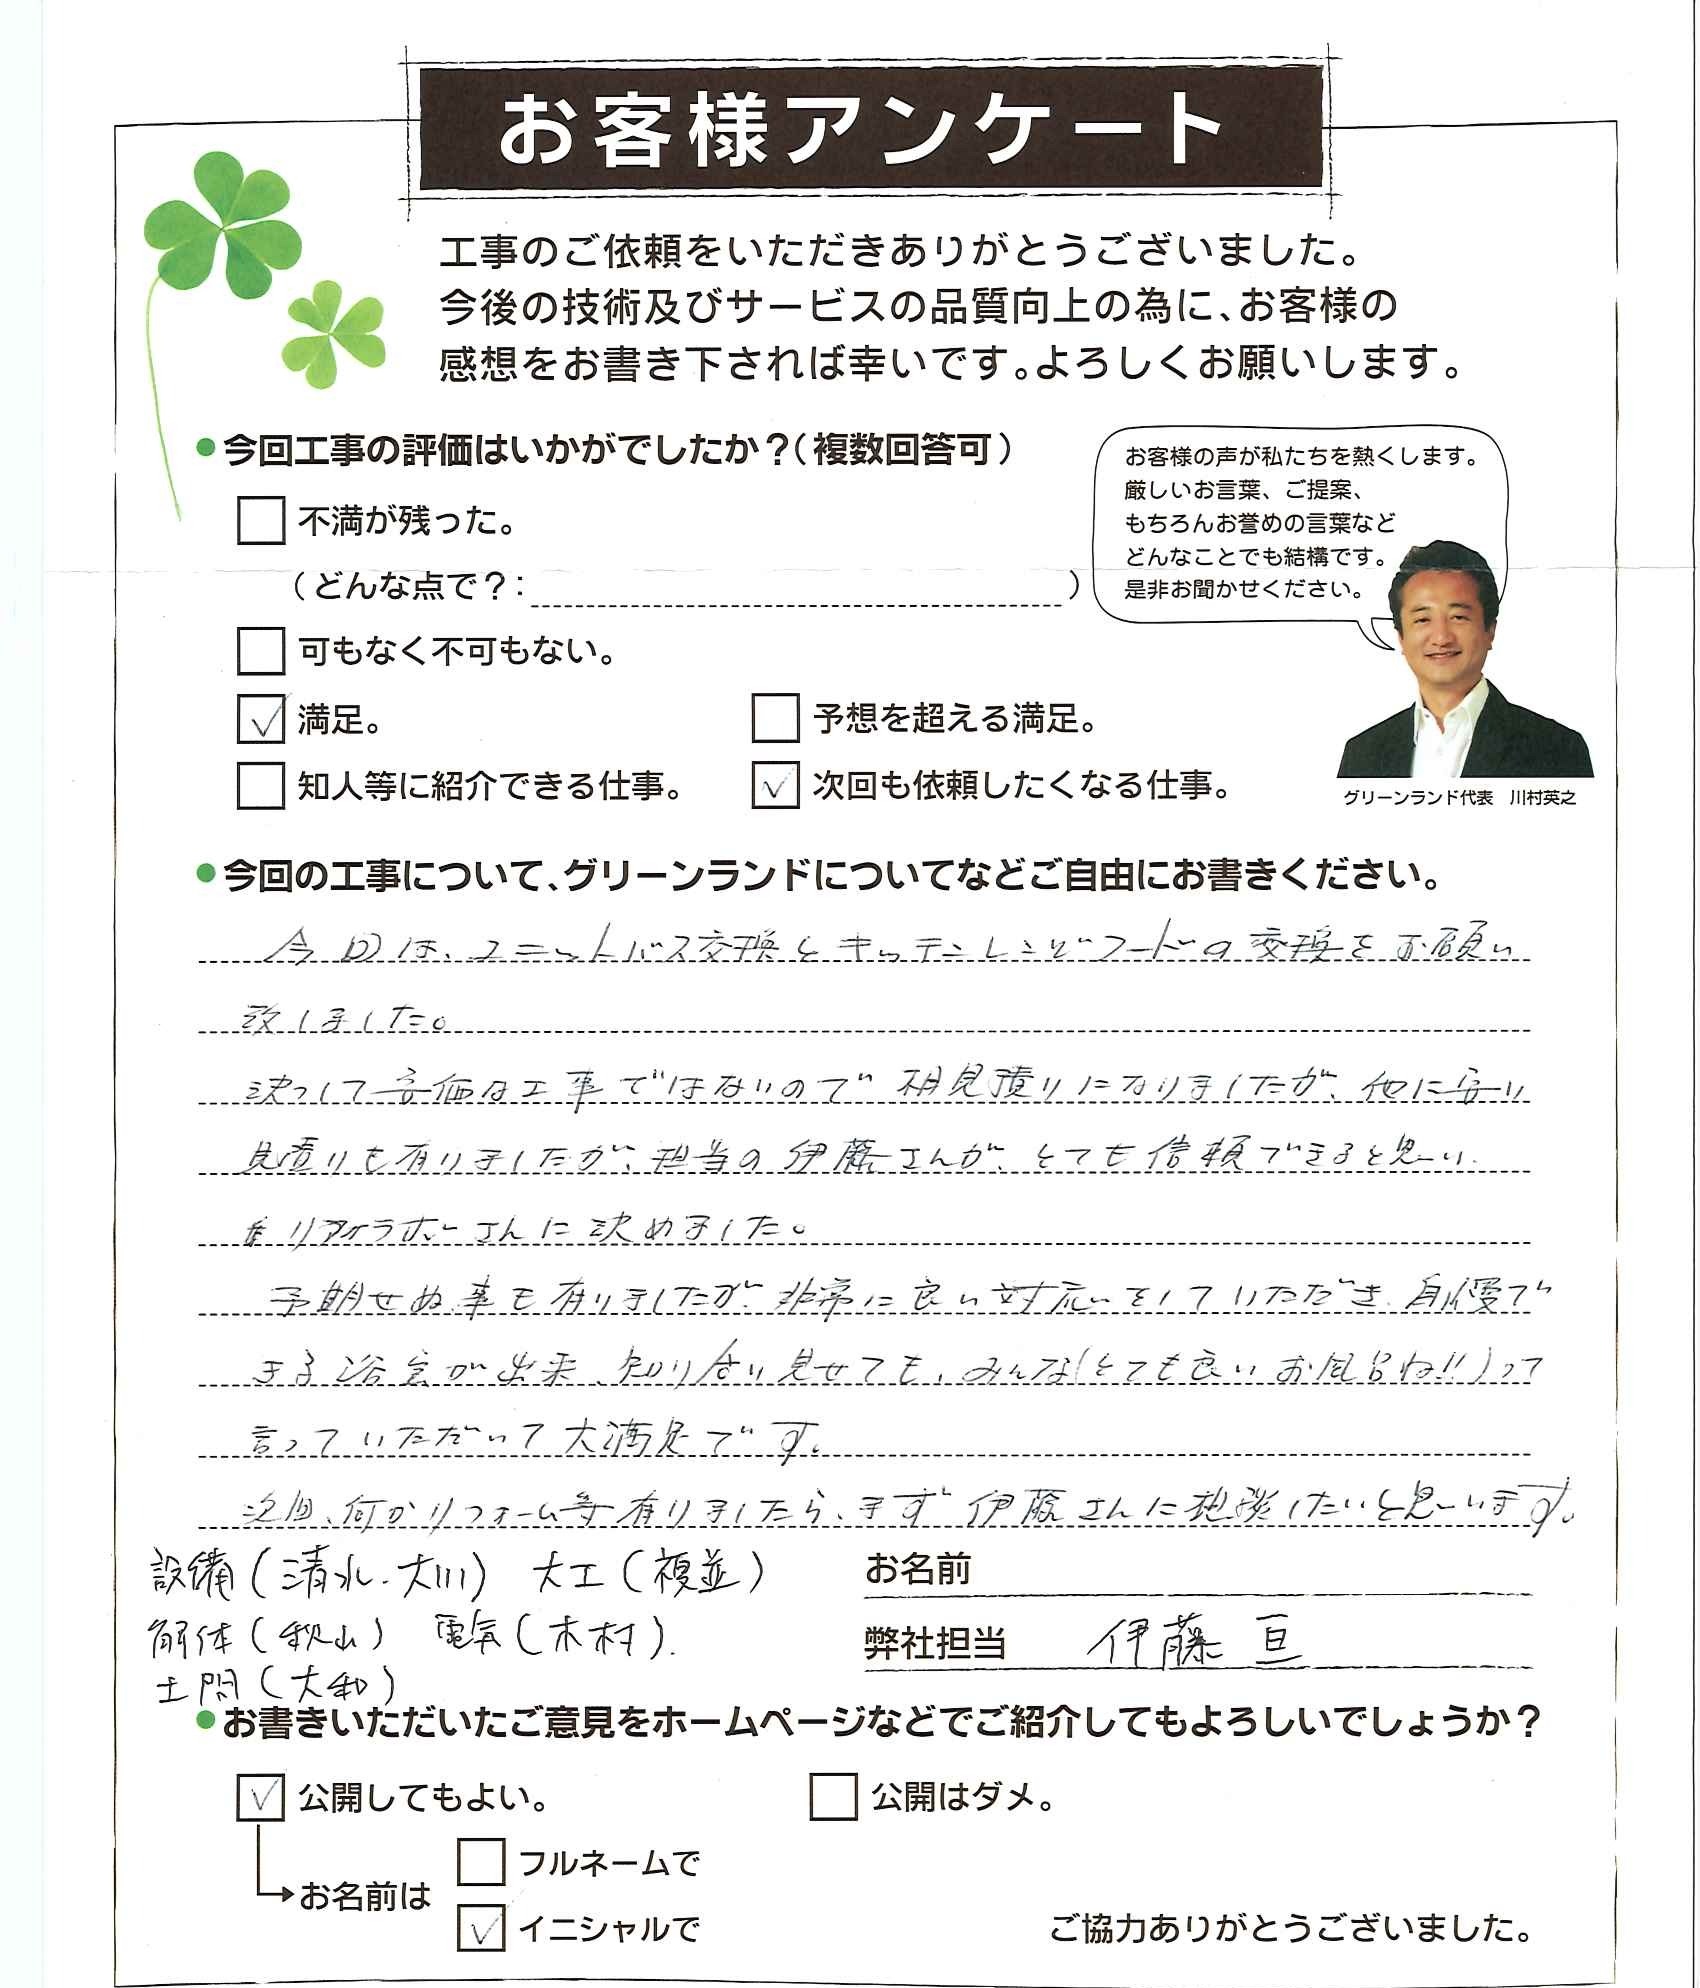 お客様アンケート
工事のご依頼をいただきありがとうございました。
今後の技術及びサービスの品質向上の為に、お客様の
感想をお書き下されば幸いです。よろしくお願いします。
●今回工事の評価はいかがでしたか？（複数回答可）
不満が残った。
（どんな点で？：　　　）
可もなく不可もない。
満足。
予想を超える満足。
知人等に紹介できる仕事。
次回も依頼したくなる仕事。
お客様の声が私たちを熱くします。
厳しいお言葉、ご提案、
もちろんお誉めの言葉など
どんなことでも結構です。
是非お聞かせください。
グリーンランド代表　川村英之
●今回の工事について、グリーンランドについてなどご自由にお書きください。
今回は、ユニットバス交換とキッチンレンジフードの交換をお願い
致しました。
決っして安価な工事ではないので相見積りになりましたが、他に安い
見積りも有りましたが、担当の伊藤さんが、とても信頼できると思い
リフォ ラボーさんに決めました。
予期せぬ事も有りましたが、非常に良い対応いをしていただき、自慢で
きる浴室が出来、知り合い見せても、みんな「とても良いお風呂ね!!」って
言っていただいて大満足です。
次回、何かリフォーム等有りましたら、まず伊藤さんに相談したいと思います。
設備（清水・大川）　大工（複並）
解体（秋山）　電気（木村）.
土間（大和）
お名前
弊社担当　伊藤 亘
●お書きいただいたご意見をホームページなどでご紹介してもよろしいでしょうか？
公開してもよい。
公開はダメ。
お名前は
フルネームで
イニシャルで
ご協力ありがとうございました。